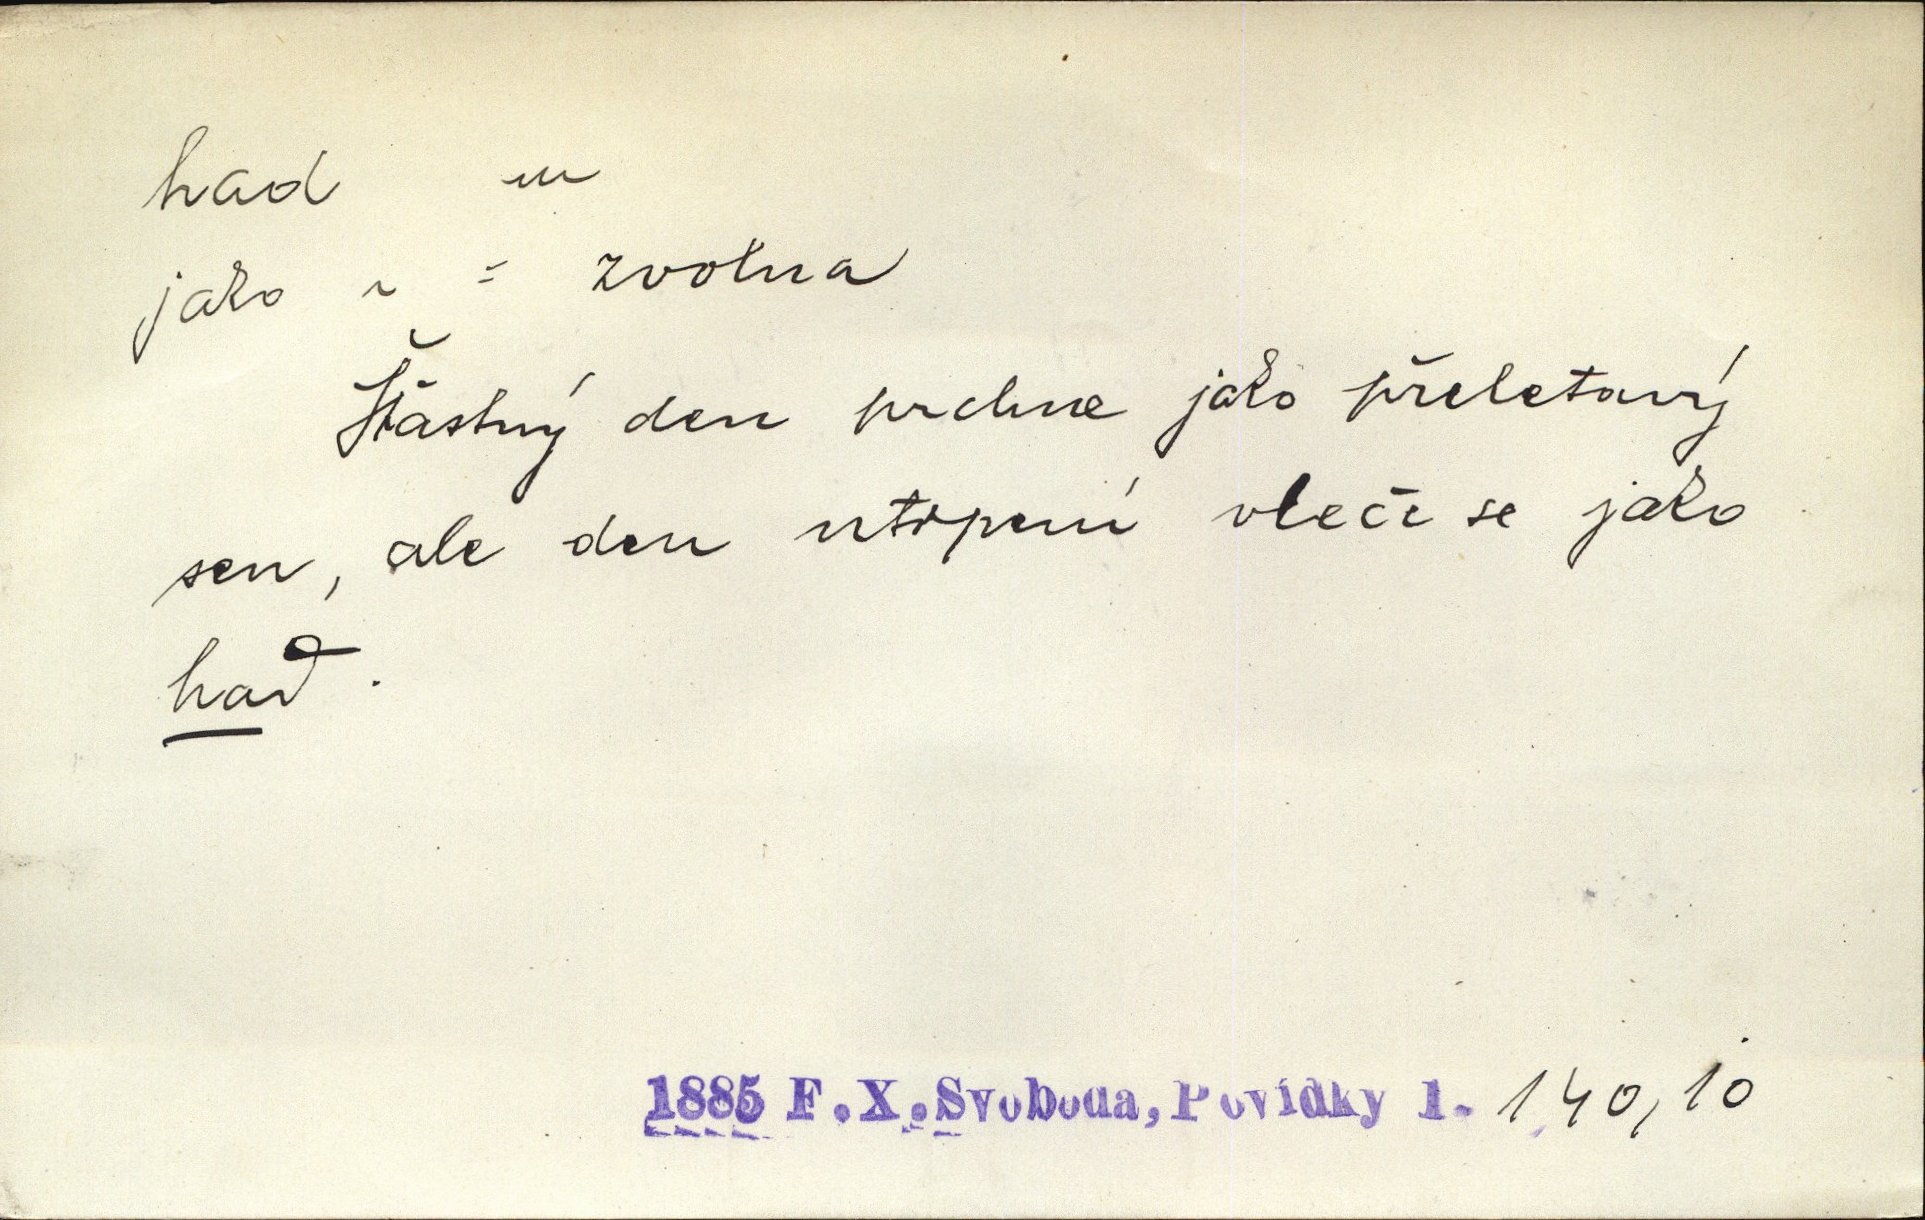 had m
jako ~ = zvolna
Šťastný den prchne jako přeletavý
sen, ale den utrpení vleče se jako
had.
1885 F.X.Svoboda, Povídky 1. 140,10